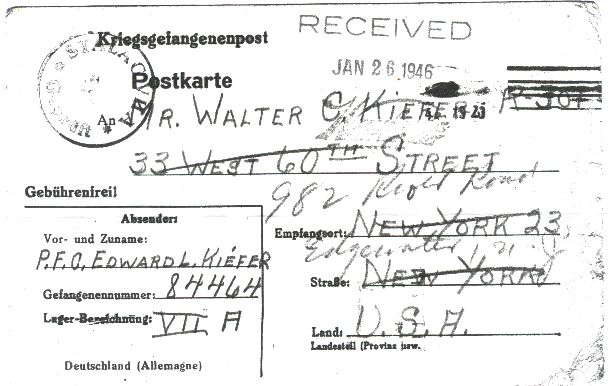 Kriegsgefangenenpost
RECEIVED
JAN 26 1946
STALAG VII A
Postkarte
An MR. WALTER C. KIEFER
33 WEST 60TH STREET
982 Road
Gebührenfrei!
Absender:
Vor- und Zuname:
P.F.C. EDWARD L. KIEFER
Gefangenennummer: 84464
Lager-Bezeichnung: VII A
Deutschland (Allemagne)
Empfangsort: NEW YORK 23,
Edgewater, N. J.
Straße: NEW YORK
Land: U. S. A.
Landesteil (Provinz usw.